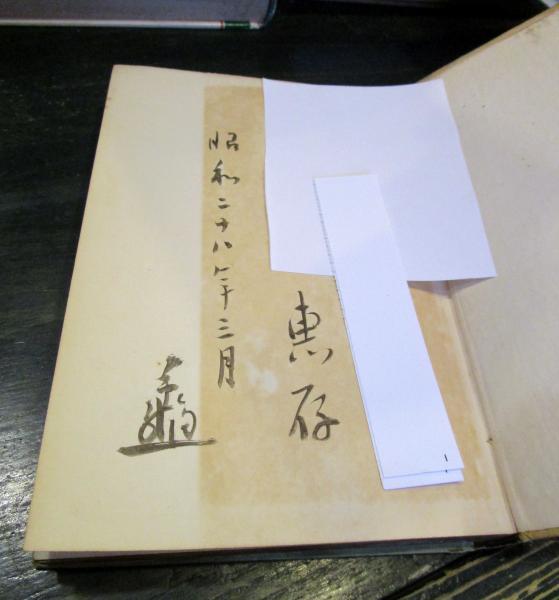 惠存
昭和二十八年三月